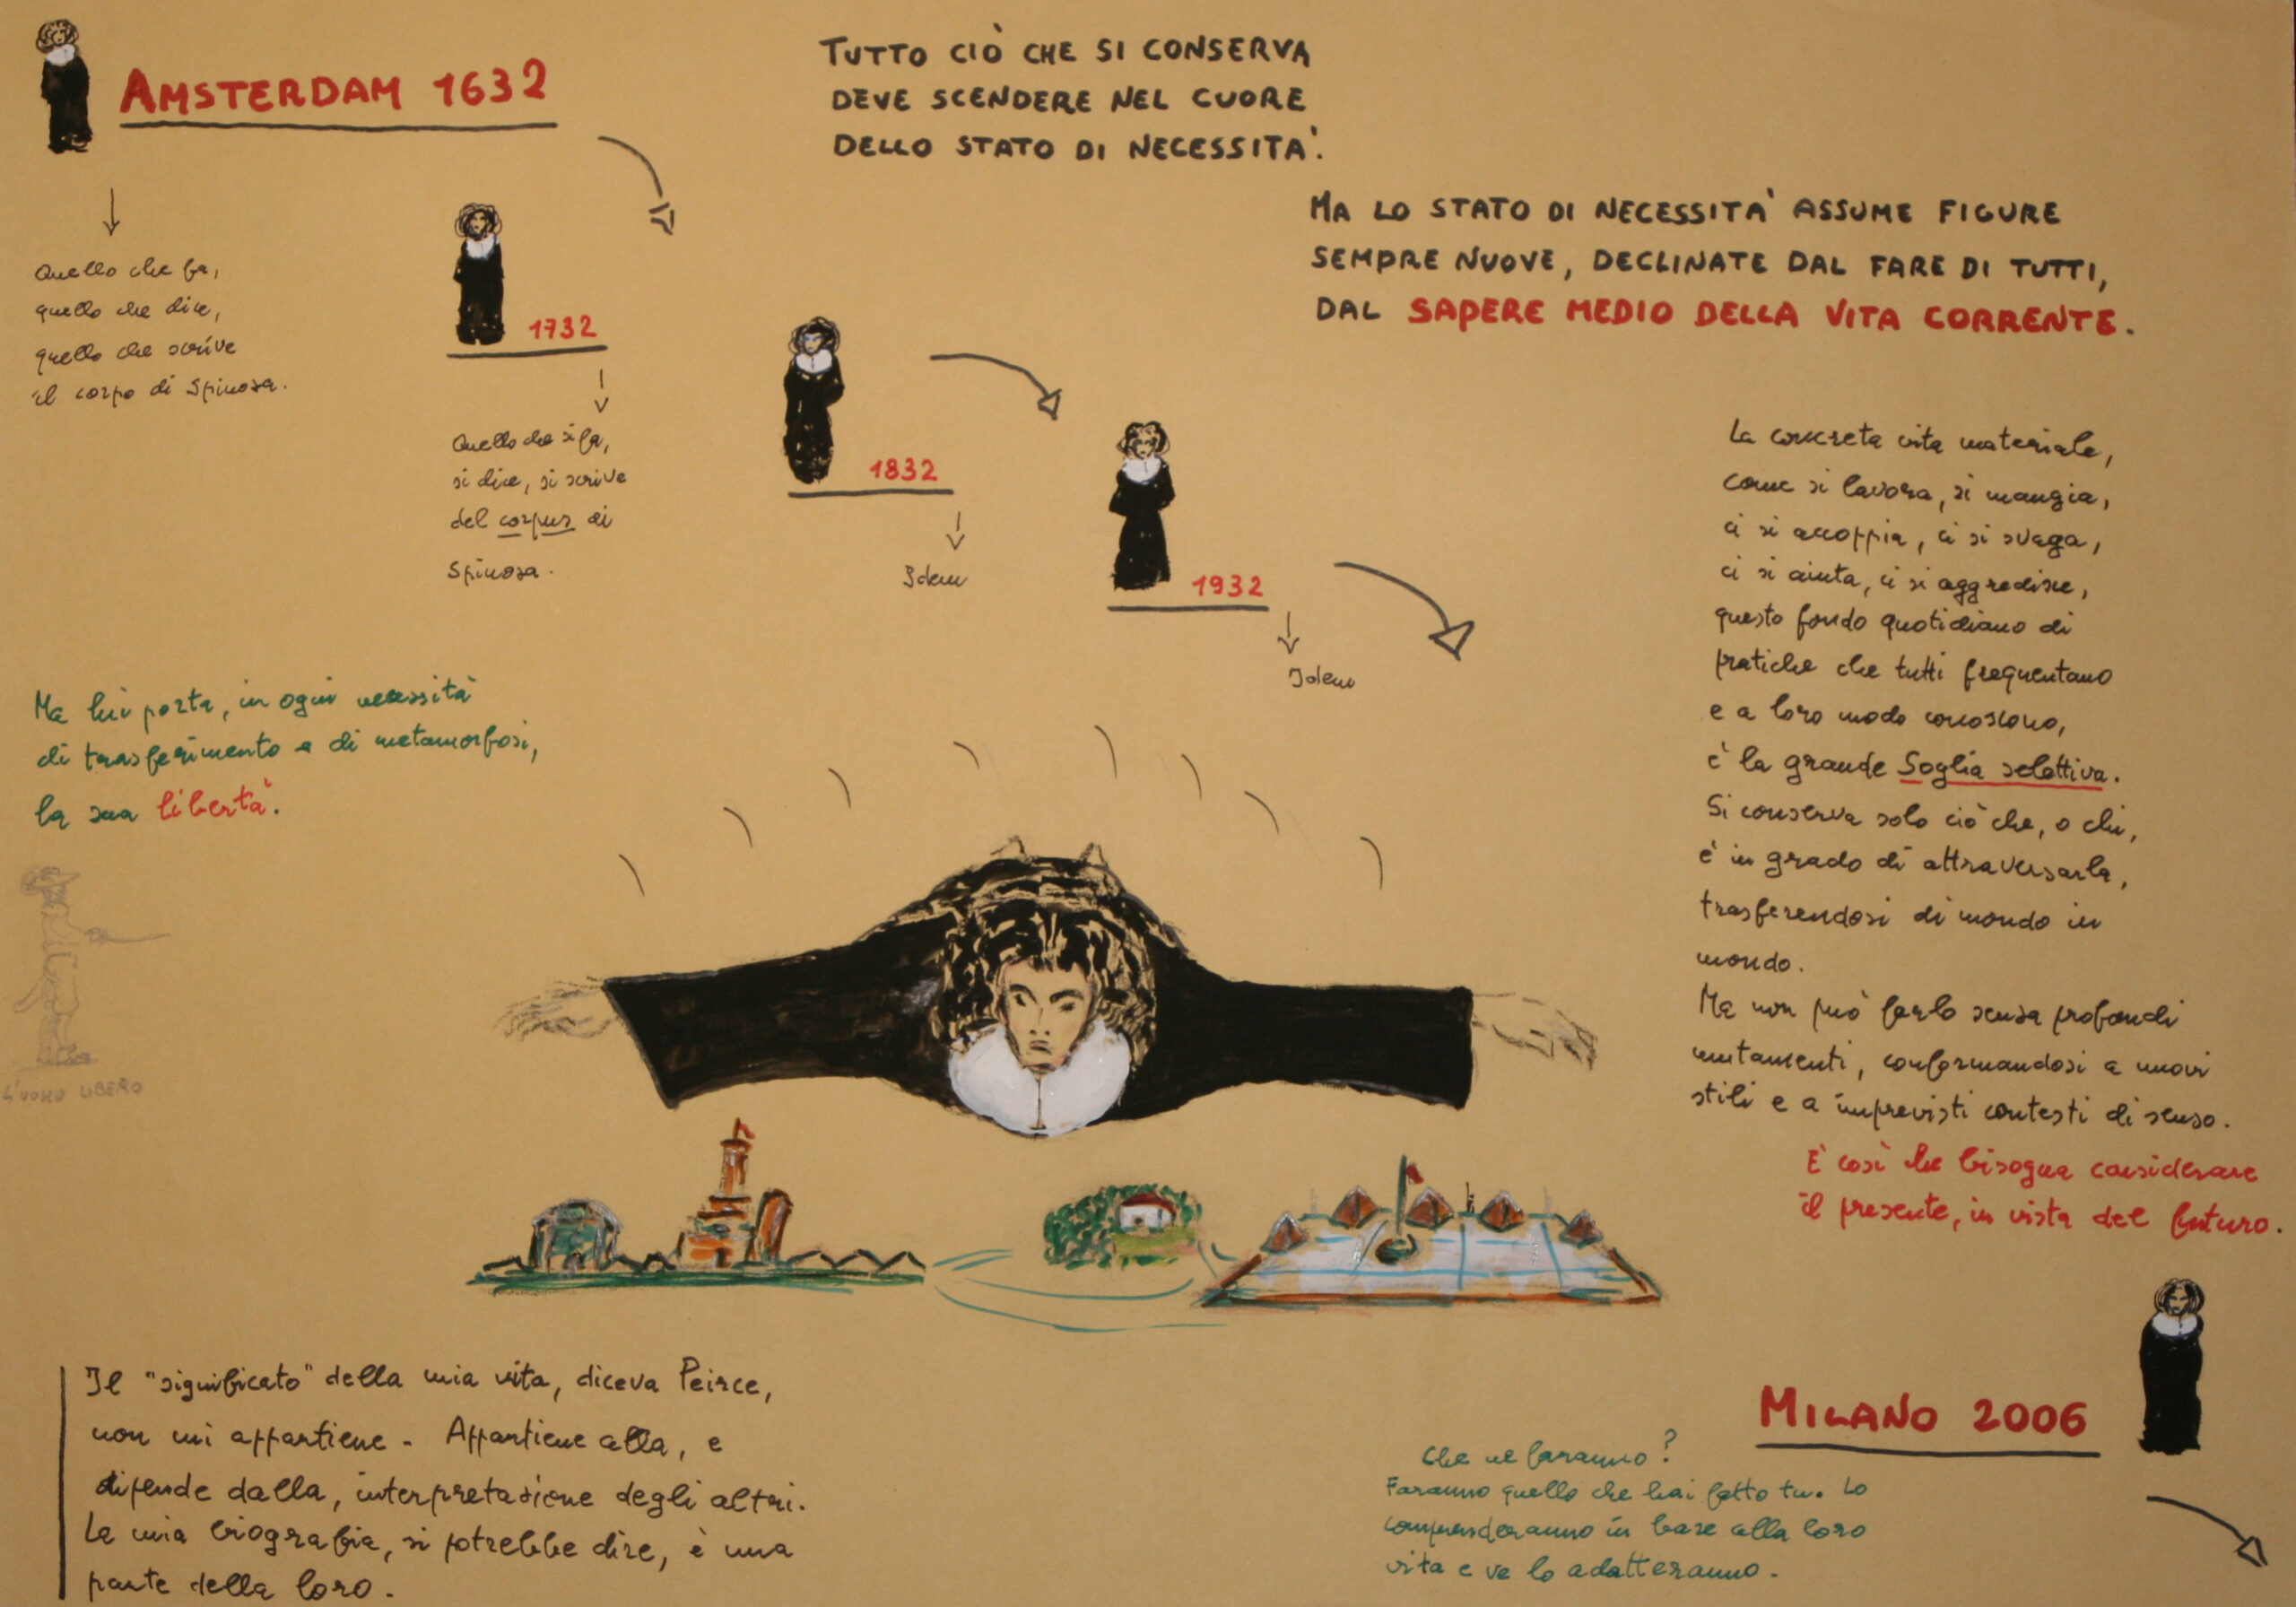 AMSTERDAM 1632
TUTTO CIÒ CHE SI CONSERVA
DEVE SCENDERE NEL CUORE
DELLO STATO DI NECESSITA'.
MA LO STATO DI NECESSITA' ASSUME FIGURE
SEMPRE NUOVE, DECLINATE DAL FARE DI TUTTI,
DAL SAPERE MEDIO DELLA VITA CORRENTE.
Quello che fa,
quello che dice,
quello che scrive
il corpo di Spinosa.
1732
Quello che si fa,
si dice, si scrive
del corpus di
Spinosa.
1832
Idem
1932
Idem
Ma lui porta, in ogni necessità
di trasferimento e di metamorfosi,
la sua libertà.
L'UOMO LIBERO
La concreta vita materiale,
come si lavora, si mangia,
ci si accoppia, ci si svaga,
ci si aiuta, ci si aggredisce,
questo fondo quotidiano di
pratiche che tutti frequentano
e a loro modo conoscono,
è la grande Soglia selettiva.
Si conserva solo ciò che, o chi,
è in grado di attraversarla,
trasferendosi di mondo in
mondo.
Ma non può farlo senza profondi
mutamenti, conformandosi a nuovi
stili e a imprevisti contesti di senso.
E' così che bisogna considerare
il presente, in vista del futuro.
Il "significato" della mia vita, diceva Peirce,
non mi appartiene - Appartiene alla, e
dipende dalla, interpretazione degli altri.
La mia biografia, si potrebbe dire, è una
parte della loro.
MILANO 2006
Che ne faranno?
Faranno quello che hai fatto tu. Lo
comprenderanno in base alla loro
vita e ve lo adatteranno.